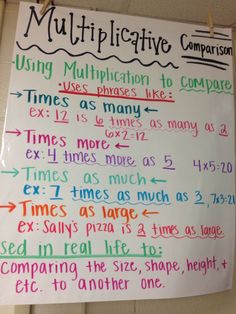 Multiplicative Comparison
Using Multiplication to COMPARE
Uses phrases like:
→Times as many←
ex: 12 is 6 times as many as 2
6x2=12
→Times more←
ex: 4 times more as 5 4x5=20
→Times as much←
ex: 7 times as much as 3, 7x3=21
→Times as large←
ex: Sally's pizza is 2 times as large
sed in real life to:
comparing the size, shape, height, +
etc. to another one.